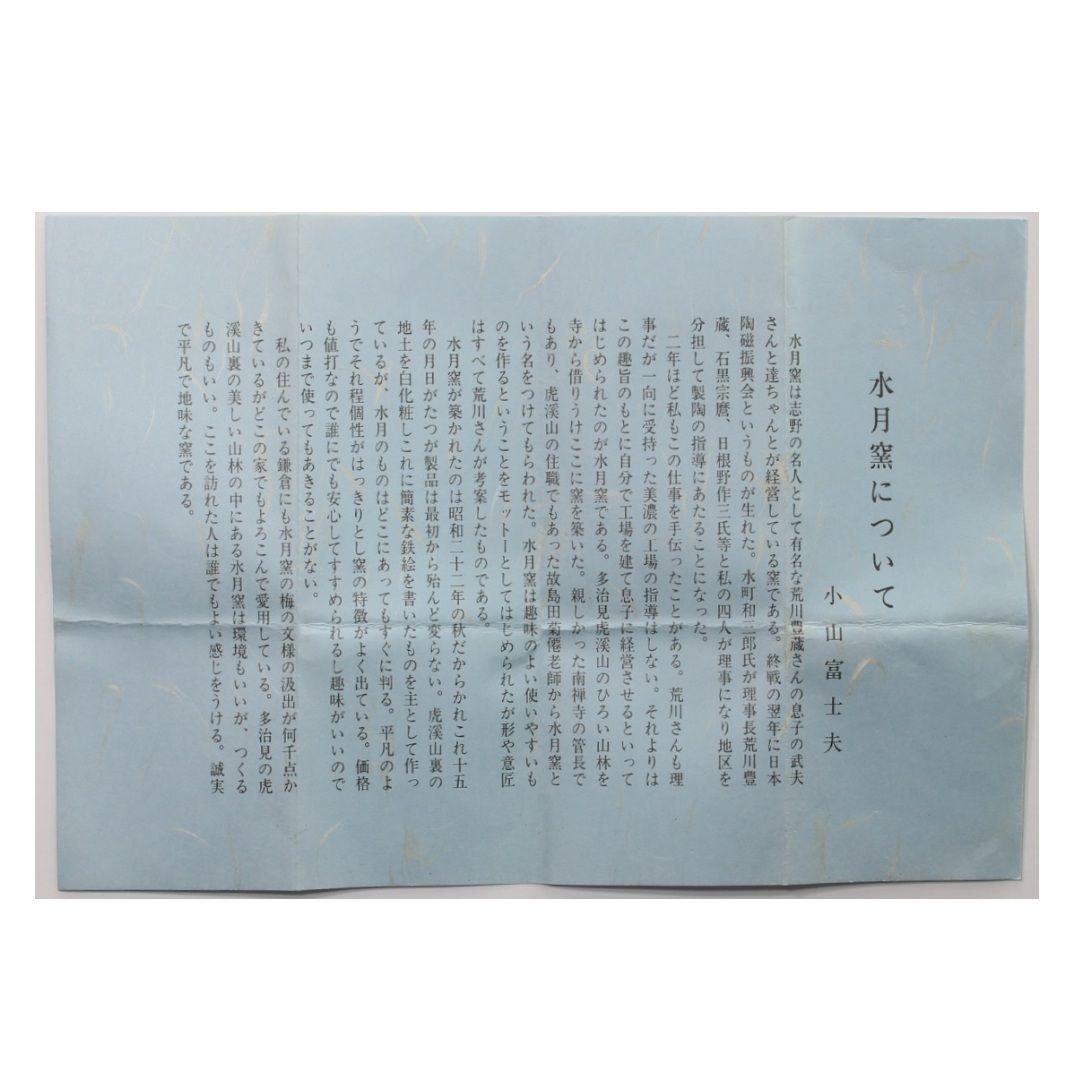 水月窯について
小山富士夫
水月窯は志野の名人として有名な荒川豊蔵さんの息子の武夫
さんと達ちゃんとが経営している窯である。終戦の翌年に日本
陶磁振興会というものが生れた。水町和三郎氏が理事長荒川豊
蔵、石黒宗麿、日根野作三氏等と私の四人が理事になり地区を
分担して製陶の指導にあたることになった。
二年ほど私もこの仕事を手伝ったことがある。荒川さんも理
事だが一向に受持った美濃の工場の指導はしない。それよりは
この趣旨のもとに自分で工場を建て息子に経営させるといって
はじめられたのが水月窯である。多治見虎溪山のひろい山林を
寺から借りうけここに窯を築いた。親しかった南禅寺の管長で
もあり、虎溪山の住職でもあった故島田菊僊老師から水月窯と
いう名をつけてもらわれた。水月窯は趣味のよい使いやすいも
のを作るということをモットーとしてはじめられたが形や意匠
はすべて荒川さんが考案したものである。
水月窯が築かれたのは昭和二十二年の秋だからかれこれ十五
年の月日がたつが製品は最初から殆んど変らない。虎溪山裏の
地土を白化粧しこれに簡素な鉄絵を書いたものを主として作っ
ているが、水月のものはどこにあってもすぐに判る。平凡のよ
うでそれ程個性がはっきりとし窯の特徴がよく出ている。価格
も値打なので誰にでも安心してすすめられるし趣味がいいので
いつまで使ってもあきることがない。
私の住んでいる鎌倉にも水月窯の梅の文様の汲出が何千点か
きているがどこの家でもよろこんで愛用している。多治見の虎
溪山裏の美しい山林の中にある水月窯は環境もいいが、つくる
ものもいい。ここを訪れた人は誰でもよい感じをうける。誠実
で平凡で地味な窯である。